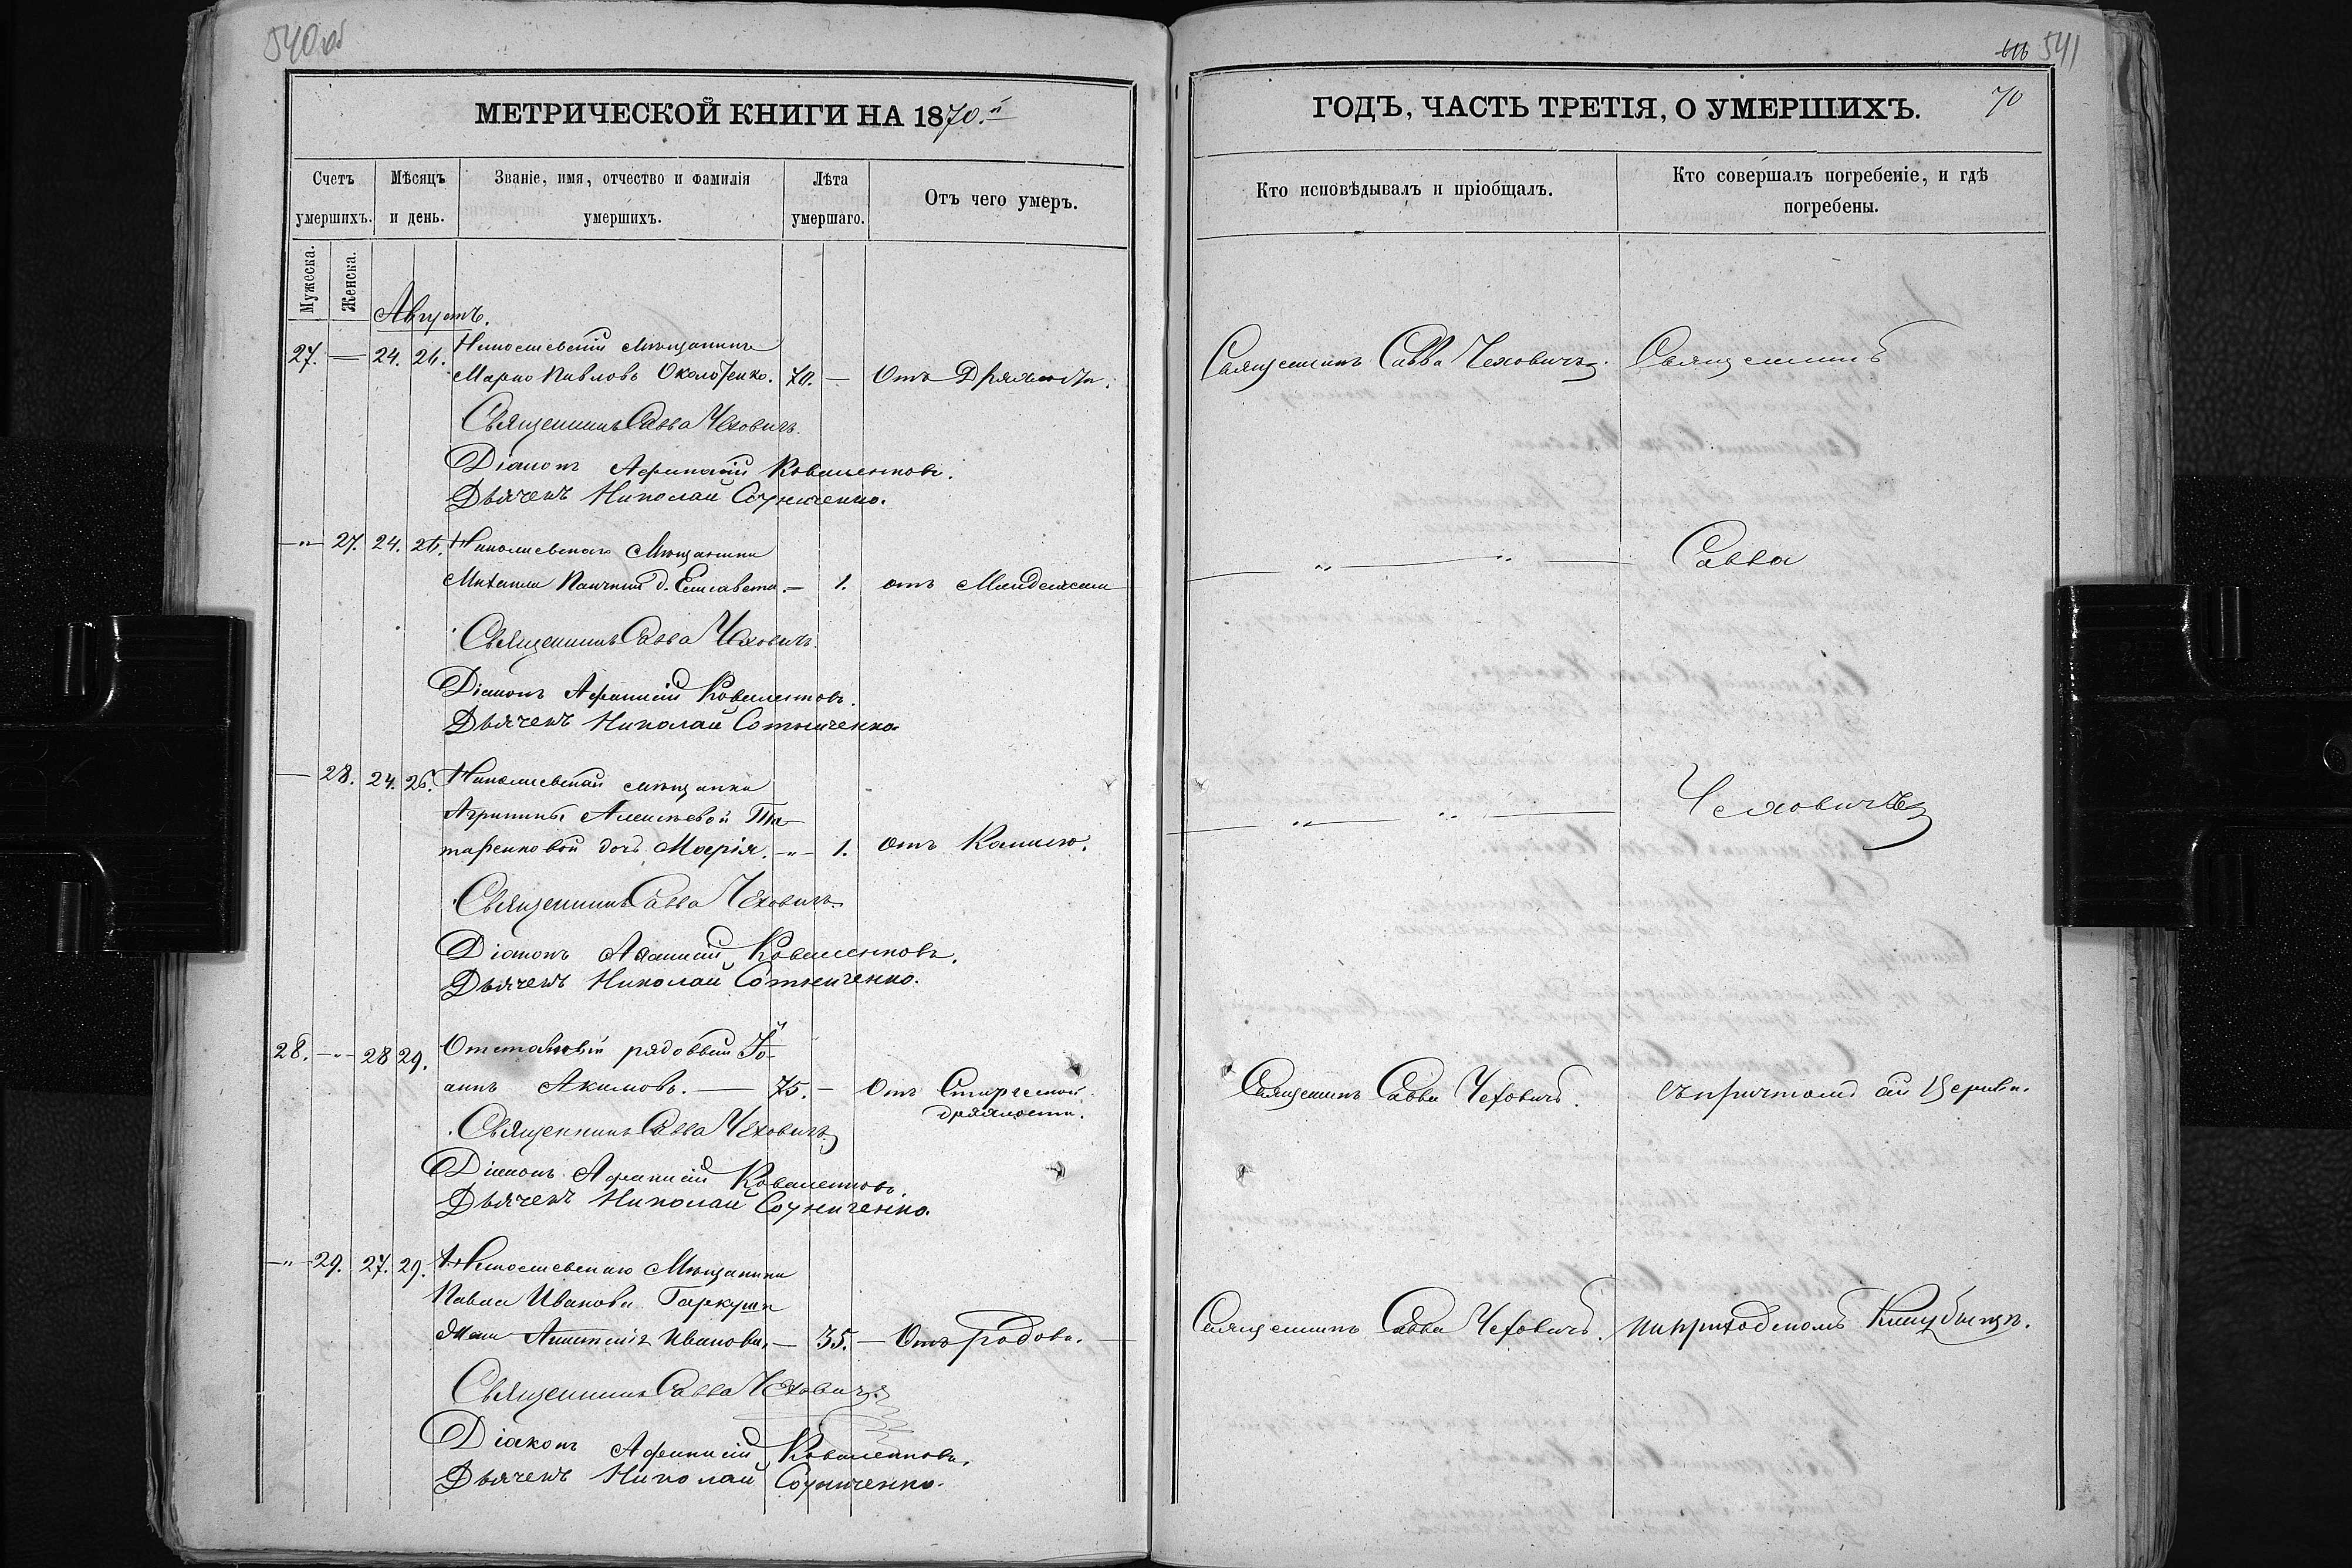 540 об
МЕТРИЧЕСКОЙ КНИГИ НА 1870.й
Счетъ умершихъ.
Мѣсяцъ и день.
Званіе, имя, отчество и фамилія умершихъ.
Лѣта умершаго.
Отъ чего умеръ.
Мужеска.
Женска.
Августъ.
27. — 24. 26. Николаевскій мѣщанинъ
Марко Павловъ Околотенко. 70. — Отъ Дряхлости.
Священникъ Савва Чехович
Діаконъ Афанасій Коваленковъ.
Дьячекъ Николай Сотниченко.
— " — 27. 24. 26. Николаевскаго Мѣщанина
Михаила д. Елисавета. — 1. отъ Младенчества
Священникъ Савва Чехович
Діаконъ Афанасій Коваленковъ.
Дьячекъ Николай Сотниченко.
— 28. 24. 26. Николаевской мѣщанки
Агрипины Алексѣевой Та-
таренковой дочь Марія. — " — 1. отъ Кашлю.
Священникъ Савва Чехович
Діаконъ Афанасій Коваленковъ.
Дьячекъ Николай Сотниченко.
28. — " — 28 29. Отставный рядовый Іо-
аннъ Акимовъ. — 75. — Отъ Старческой
дряхлости.
Священникъ Савва Чеховичъ
Діаконъ Афанасій Коваленковъ.
Дьячекъ Николай Сотниченко.
— " — 29. 27. 29. Николаевскаго Мѣщанина
Павла Иванова Гаркуши
жена Анастасія Иванова. — 35. — Отъ родовъ. —
Священникъ Савва Чеховичъ
Діаконъ Афанасій Коваленковъ.
Дьячекъ Николай Сотниченко.
541
ГОДЪ, ЧАСТЬ ТРЕТІЯ, О УМЕРШИХЪ.
70
Кто исповѣдывалъ и пріобщалъ.
Кто совершалъ погребеніе, и гдѣ погребены.
Священникъ Савва Чеховичъ. Священникъ
— " — " — Савва
— " — " — Чеховичъ
Священникъ Савва Чеховичъ. съ причтомъ сей Церкви.
Священникъ Савва Чеховичъ. на приходскомъ Кладбищѣ.